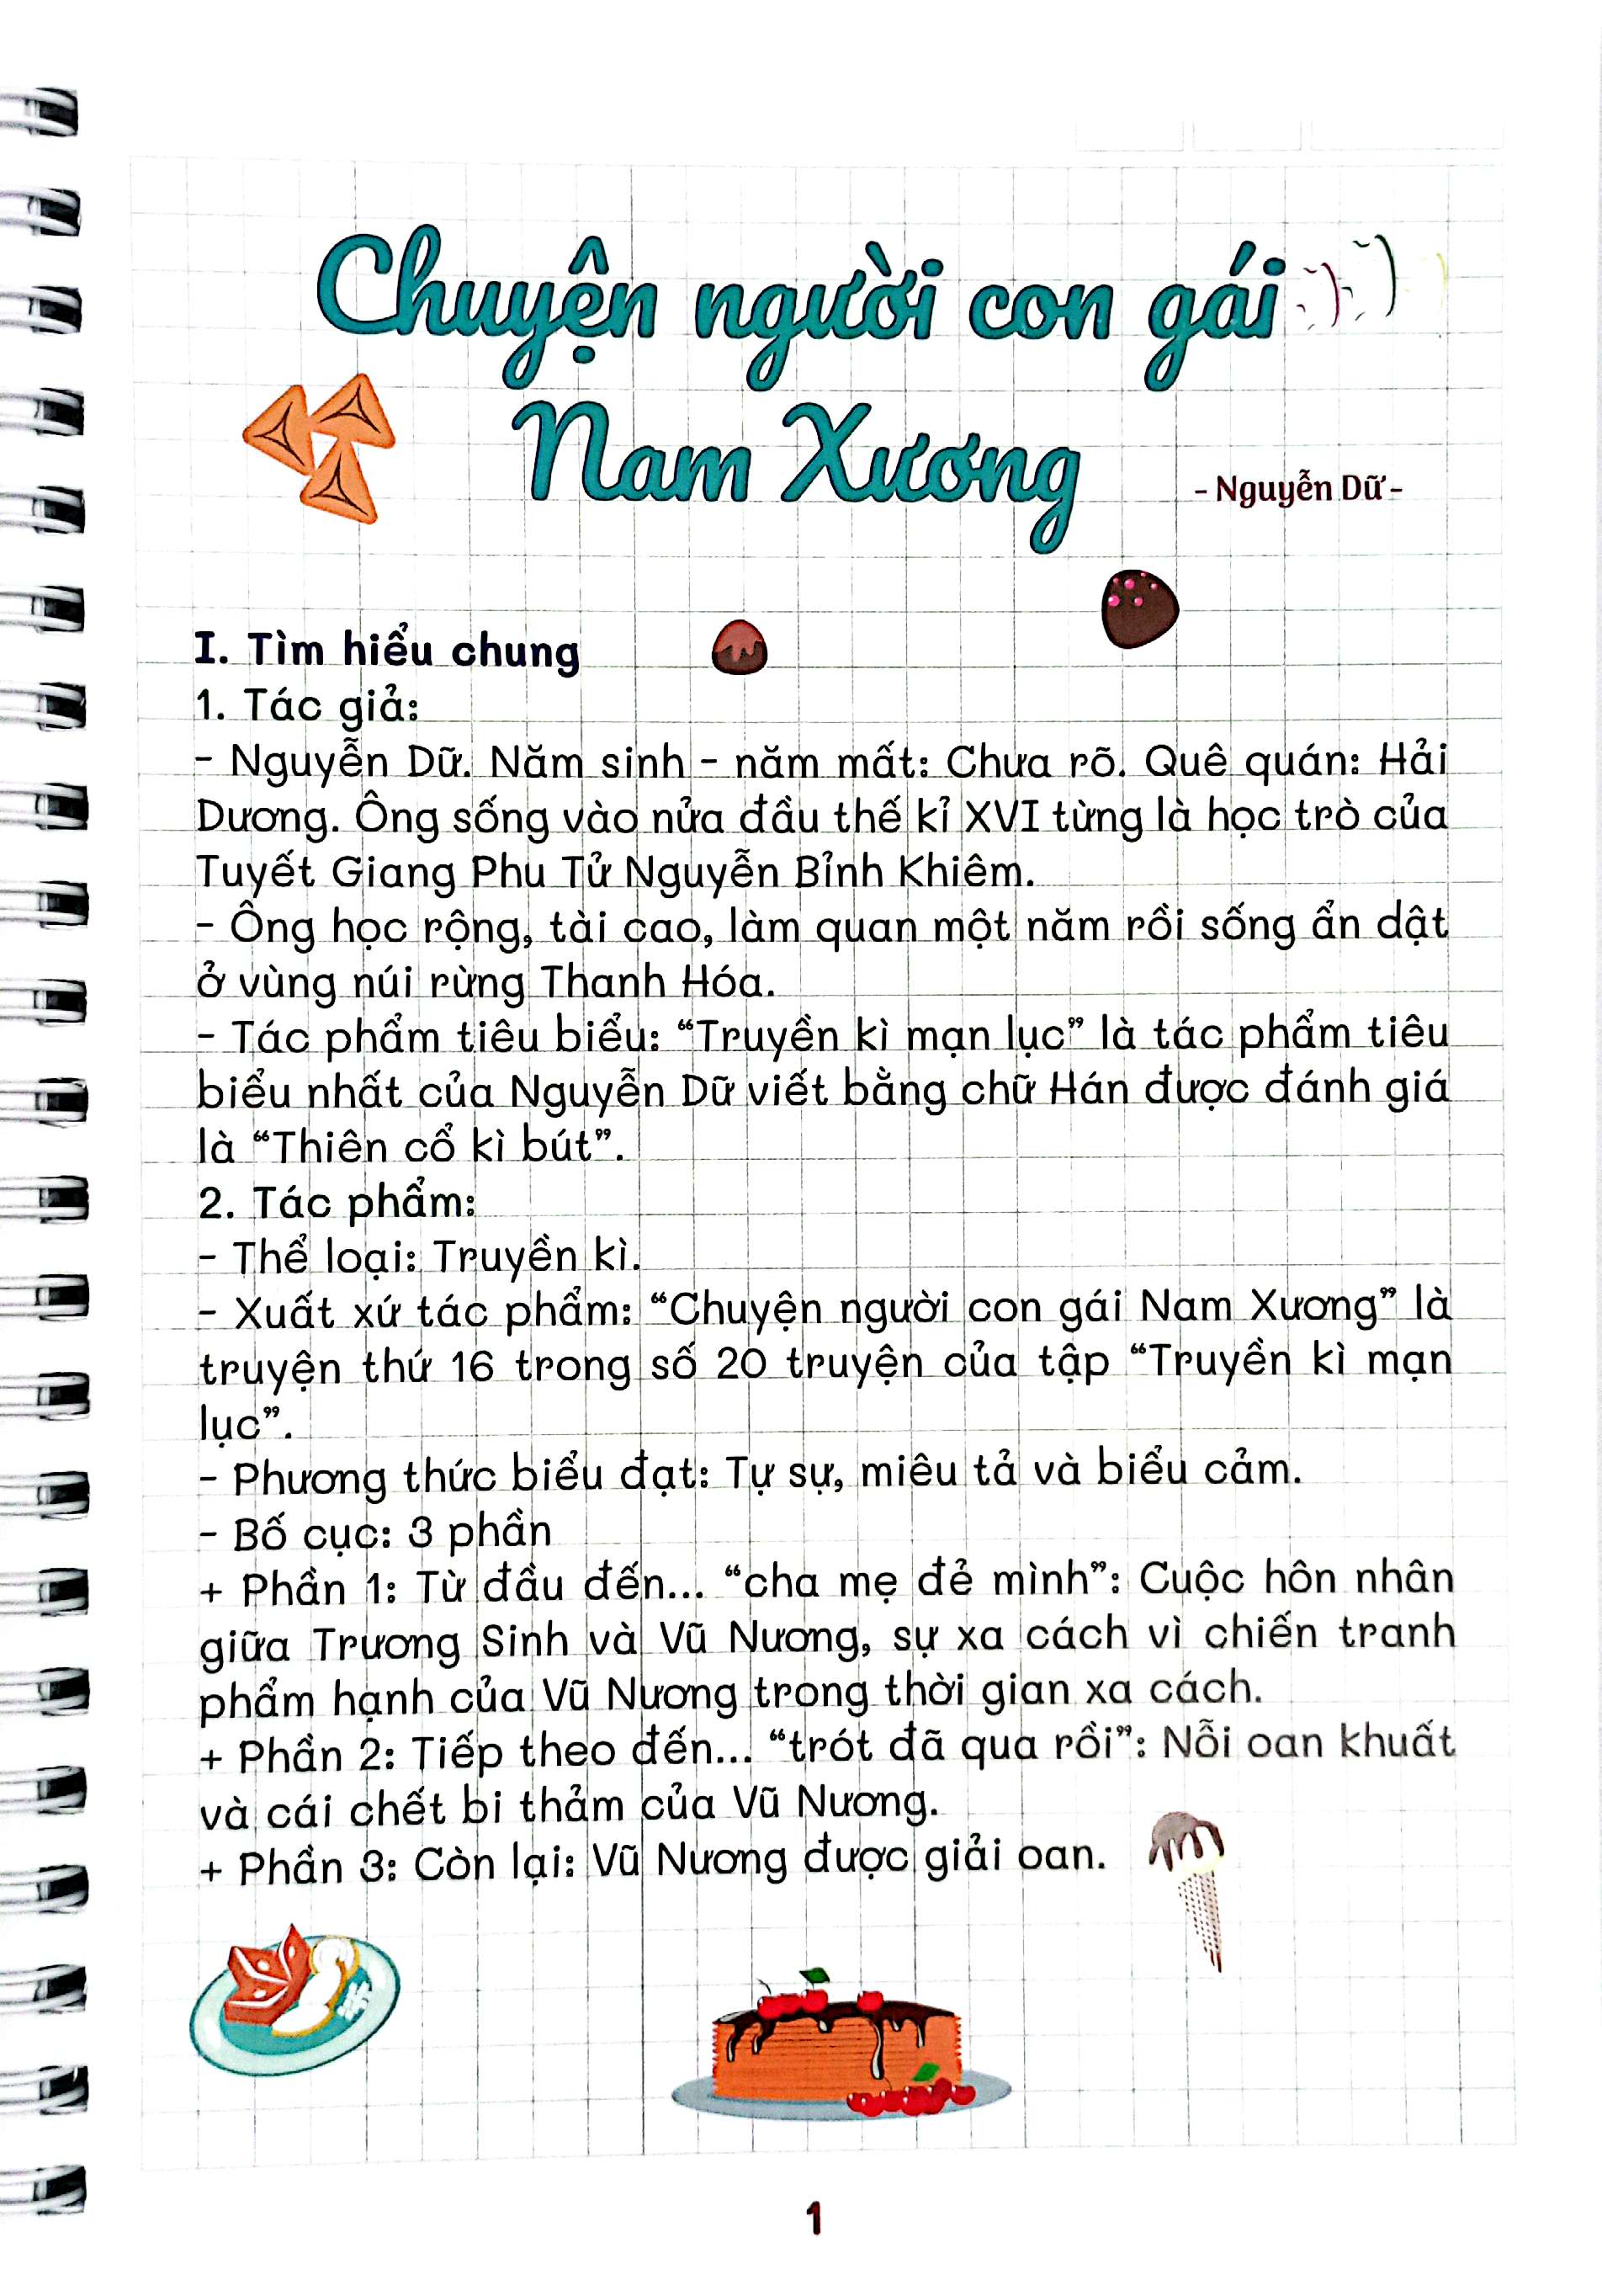 Chuyện người con gái
Nam Xương
- Nguyễn Dữ -
I. Tìm hiểu chung
1. Tác giả:
- Nguyễn Dữ. Năm sinh - năm mất: Chưa rõ. Quê quán: Hải
Dương. Ông sống vào nửa đầu thế kỉ XVI từng là học trò của
Tuyết Giang Phu Tử Nguyễn Bỉnh Khiêm.
- Ông học rộng, tài cao, làm quan một năm rồi sống ẩn dật
ở vùng núi rừng Thanh Hóa.
- Tác phẩm tiêu biểu: “Truyền kì mạn lục” là tác phẩm tiêu
biểu nhất của Nguyễn Dữ viết bằng chữ Hán được đánh giá
là “Thiên cổ kì bút”.
2. Tác phẩm:
- Thể loại: Truyền kì.
- Xuất xứ tác phẩm: “Chuyện người con gái Nam Xương” là
truyện thứ 16 trong số 20 truyện của tập “Truyền kì mạn
lục”.
- Phương thức biểu đạt: Tự sự, miêu tả và biểu cảm.
- Bố cục: 3 phần
+ Phần 1: Từ đầu đến... “cha mẹ đẻ mình”: Cuộc hôn nhân
giữa Trương Sinh và Vũ Nương, sự xa cách vì chiến tranh
phẩm hạnh của Vũ Nương trong thời gian xa cách.
+ Phần 2: Tiếp theo đến... “trót đã qua rồi”: Nỗi oan khuất
và cái chết bi thảm của Vũ Nương.
+ Phần 3: Còn lại: Vũ Nương được giải oan.
1